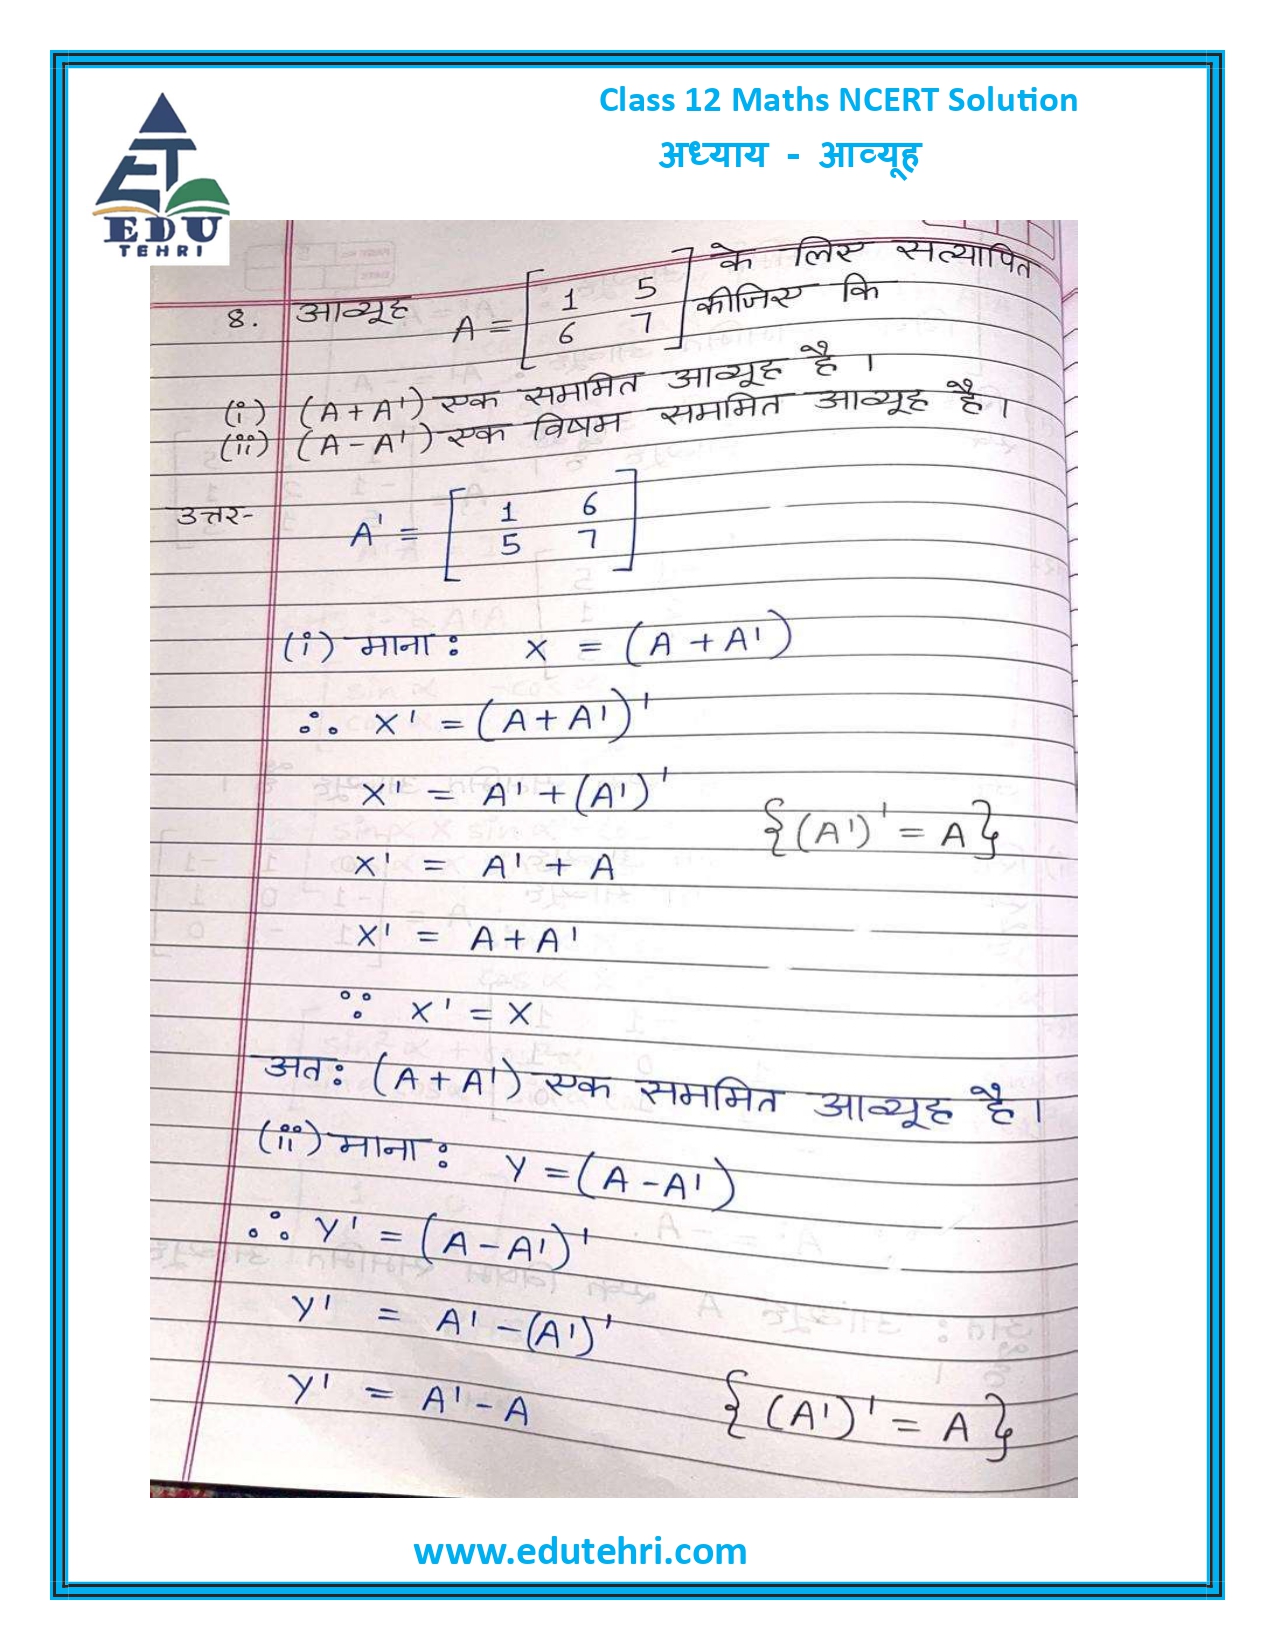 Class 12 Maths NCERT Solution
अध्याय - आव्यूह
EDU
TEHRI
8. आव्यूह A = [1 5 के लिए सत्यापित
6 7] कीजिए कि
(i) (A+A') एक सममित आव्यूह है ।
(ii) (A-A') एक विषम सममित आव्यूह है ।
उत्तर- A' = [1 6
5 7]
(i) माना : X = (A + A')
∴ X' = (A + A')'
X' = A' + (A')'
{(A')' = A}
X' = A' + A
X' = A + A'
∵ X' = X
अत: (A + A') एक सममित आव्यूह है ।
(ii) माना : Y = (A - A')
∴ Y' = (A - A')'
Y' = A' - (A')'
Y' = A' - A {(A')' = A}
www.edutehri.com